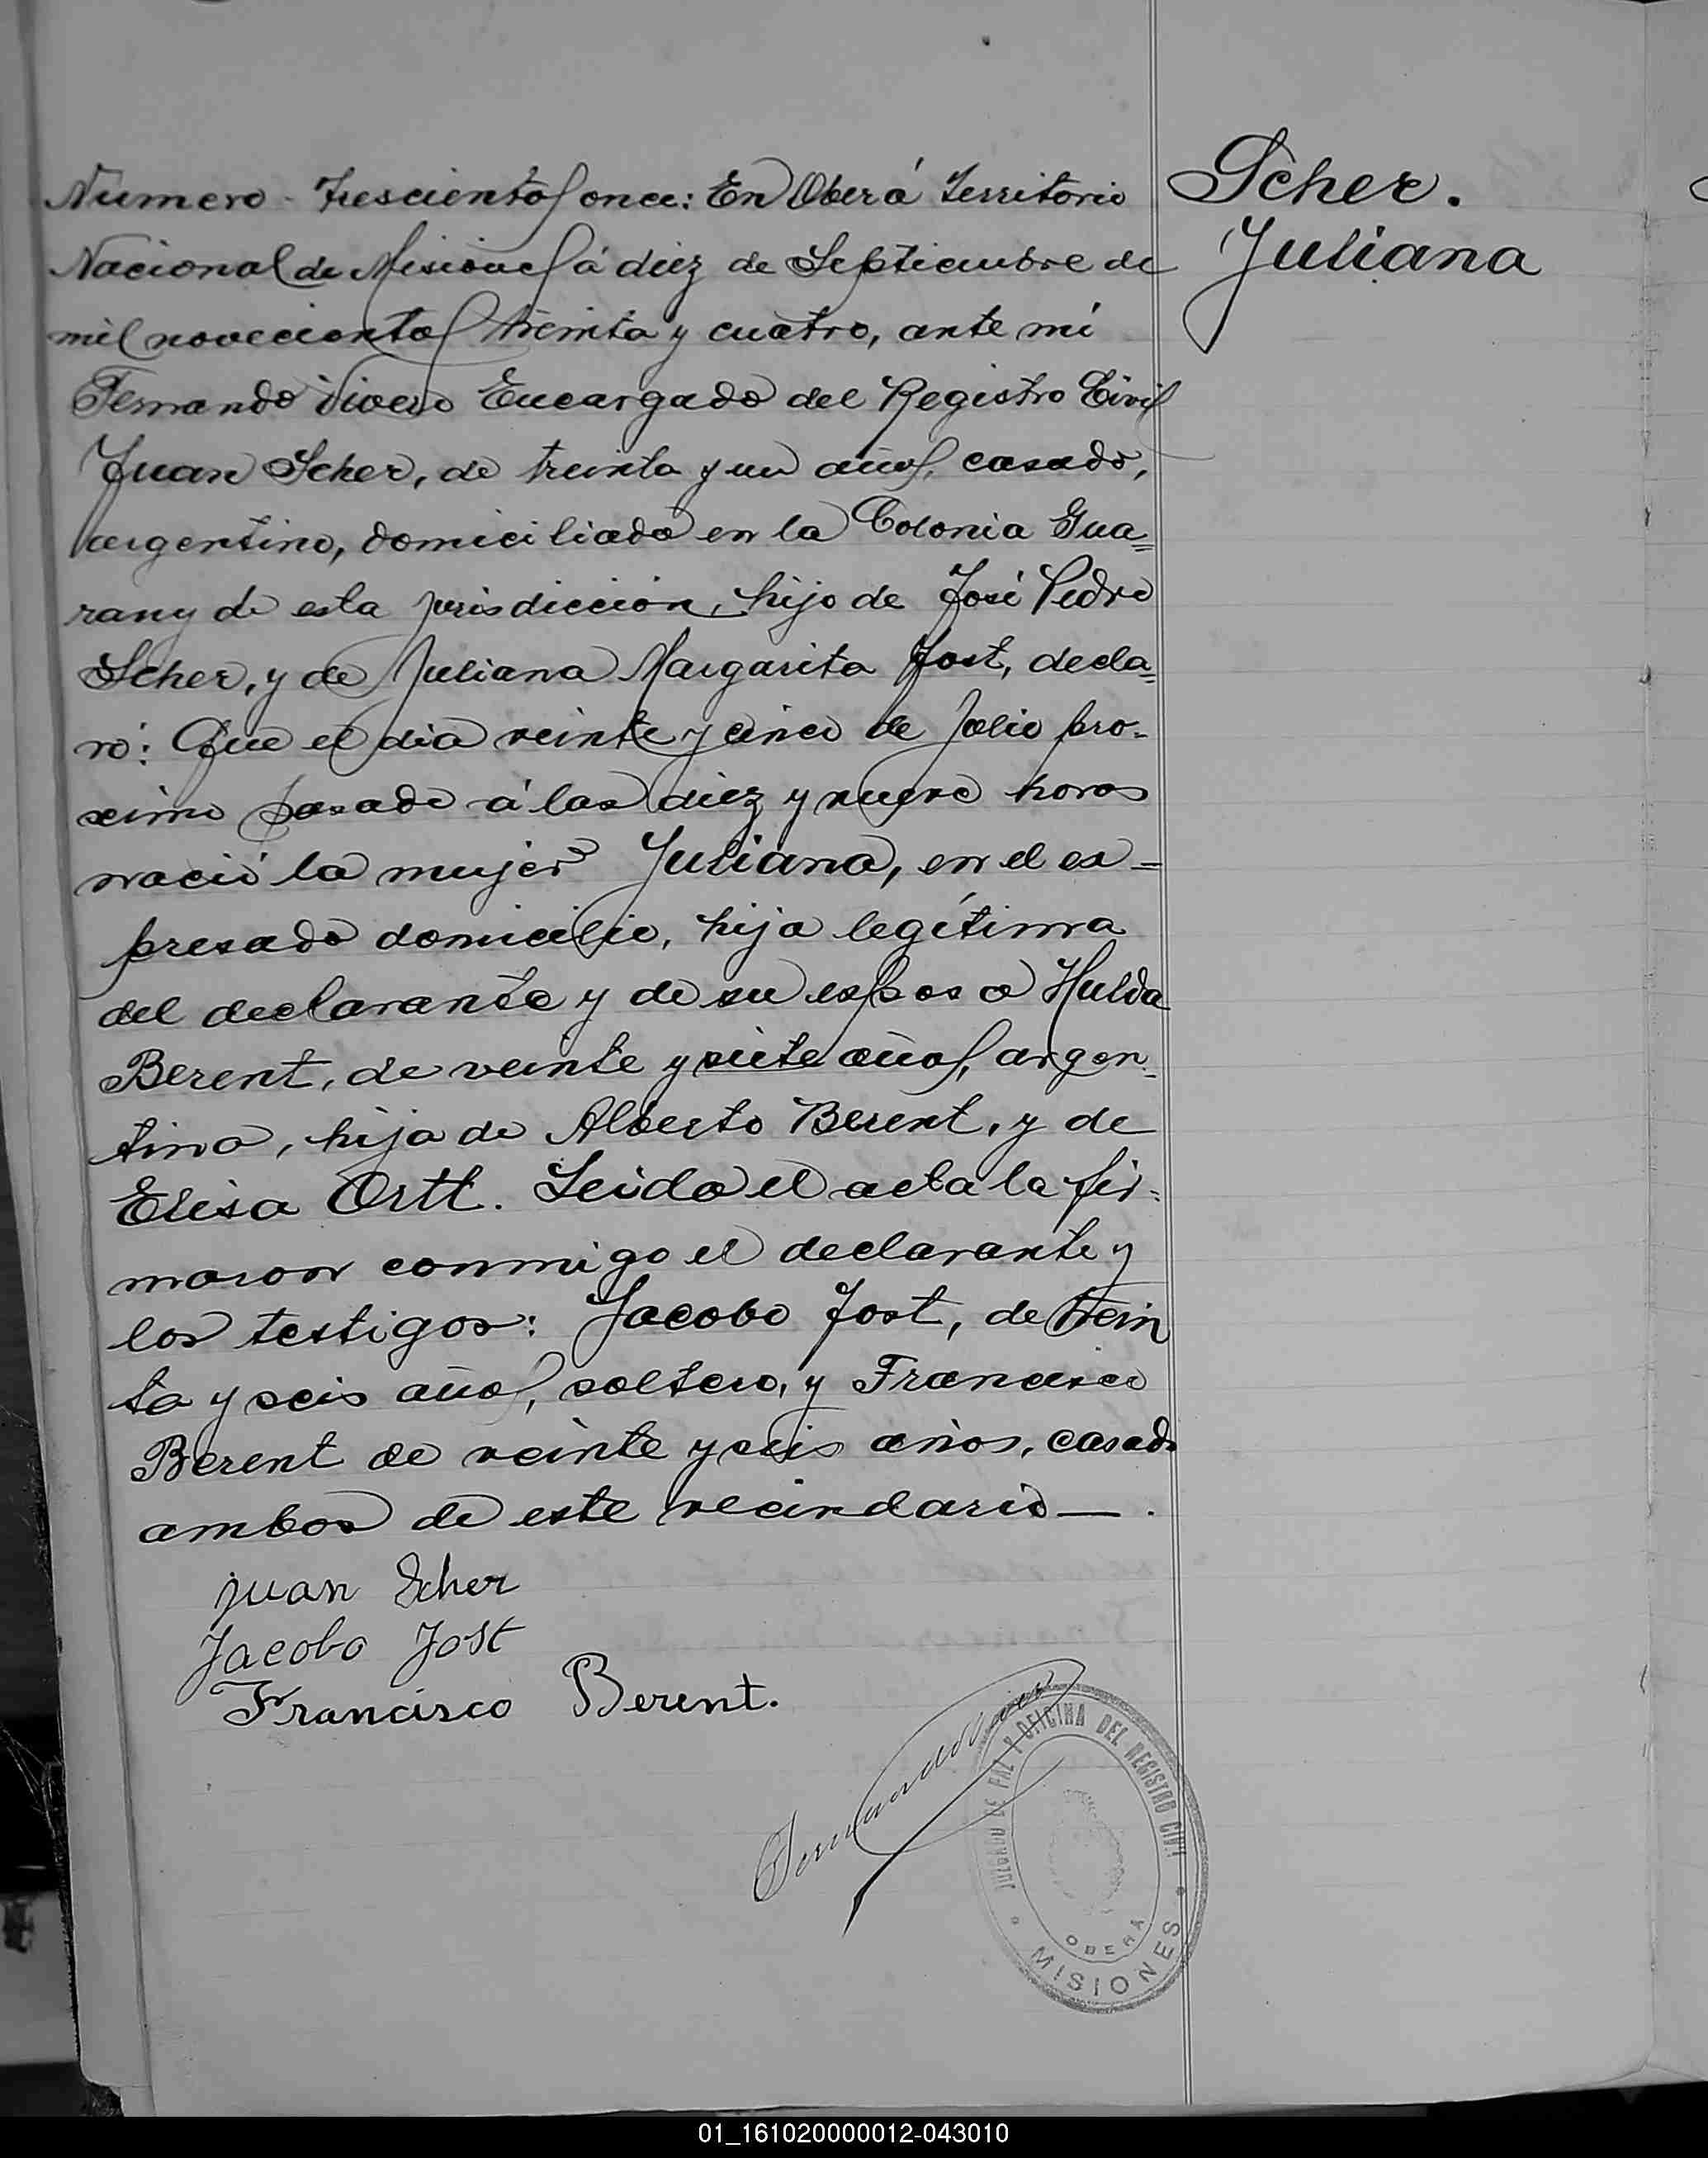 Numero Trescientos once: En Oberá Territorio
Nacional de Misiones á diez de Septiembre de
mil novecientos treinta y cuatro, ante mi
Fernando Encargado del Registro Civil
Juan Scher, de treinta y un años, casado,
argentino, domiciliado en la Colonia Gua=
rany de esta jurisdiccion, hijo de José Pedro
Scher, y de Juliana Margarita Jost, decla=
ró: Que el dia veinte y cinco de Julio pro-
ximo pasado á las diez y nueve horas
nació la mujer Juliana, en el es=
presado domicilio, hija legítima
del declarante y de su esposa Hulda
Berent, de veinte y siete años, argen-
tina, hija de Alberto Berent, y de
Elisa Ortt. Leida el acta la fir=
maron conmigo el declarante y
los testigos: Jacobo Jost, de trein
ta y seis años, soltero, y Francisco
Berent de veinte y seis años, casado
ambos de este vecindario—.
Scher.
Juliana
juan Scher
Jacobo Jost
Francisco Berent.
JUZGADO DE PAZ Y OFICINA DEL REGISTRO CIVIL
OBERÁ
MISIONES
01_161020000012-043010